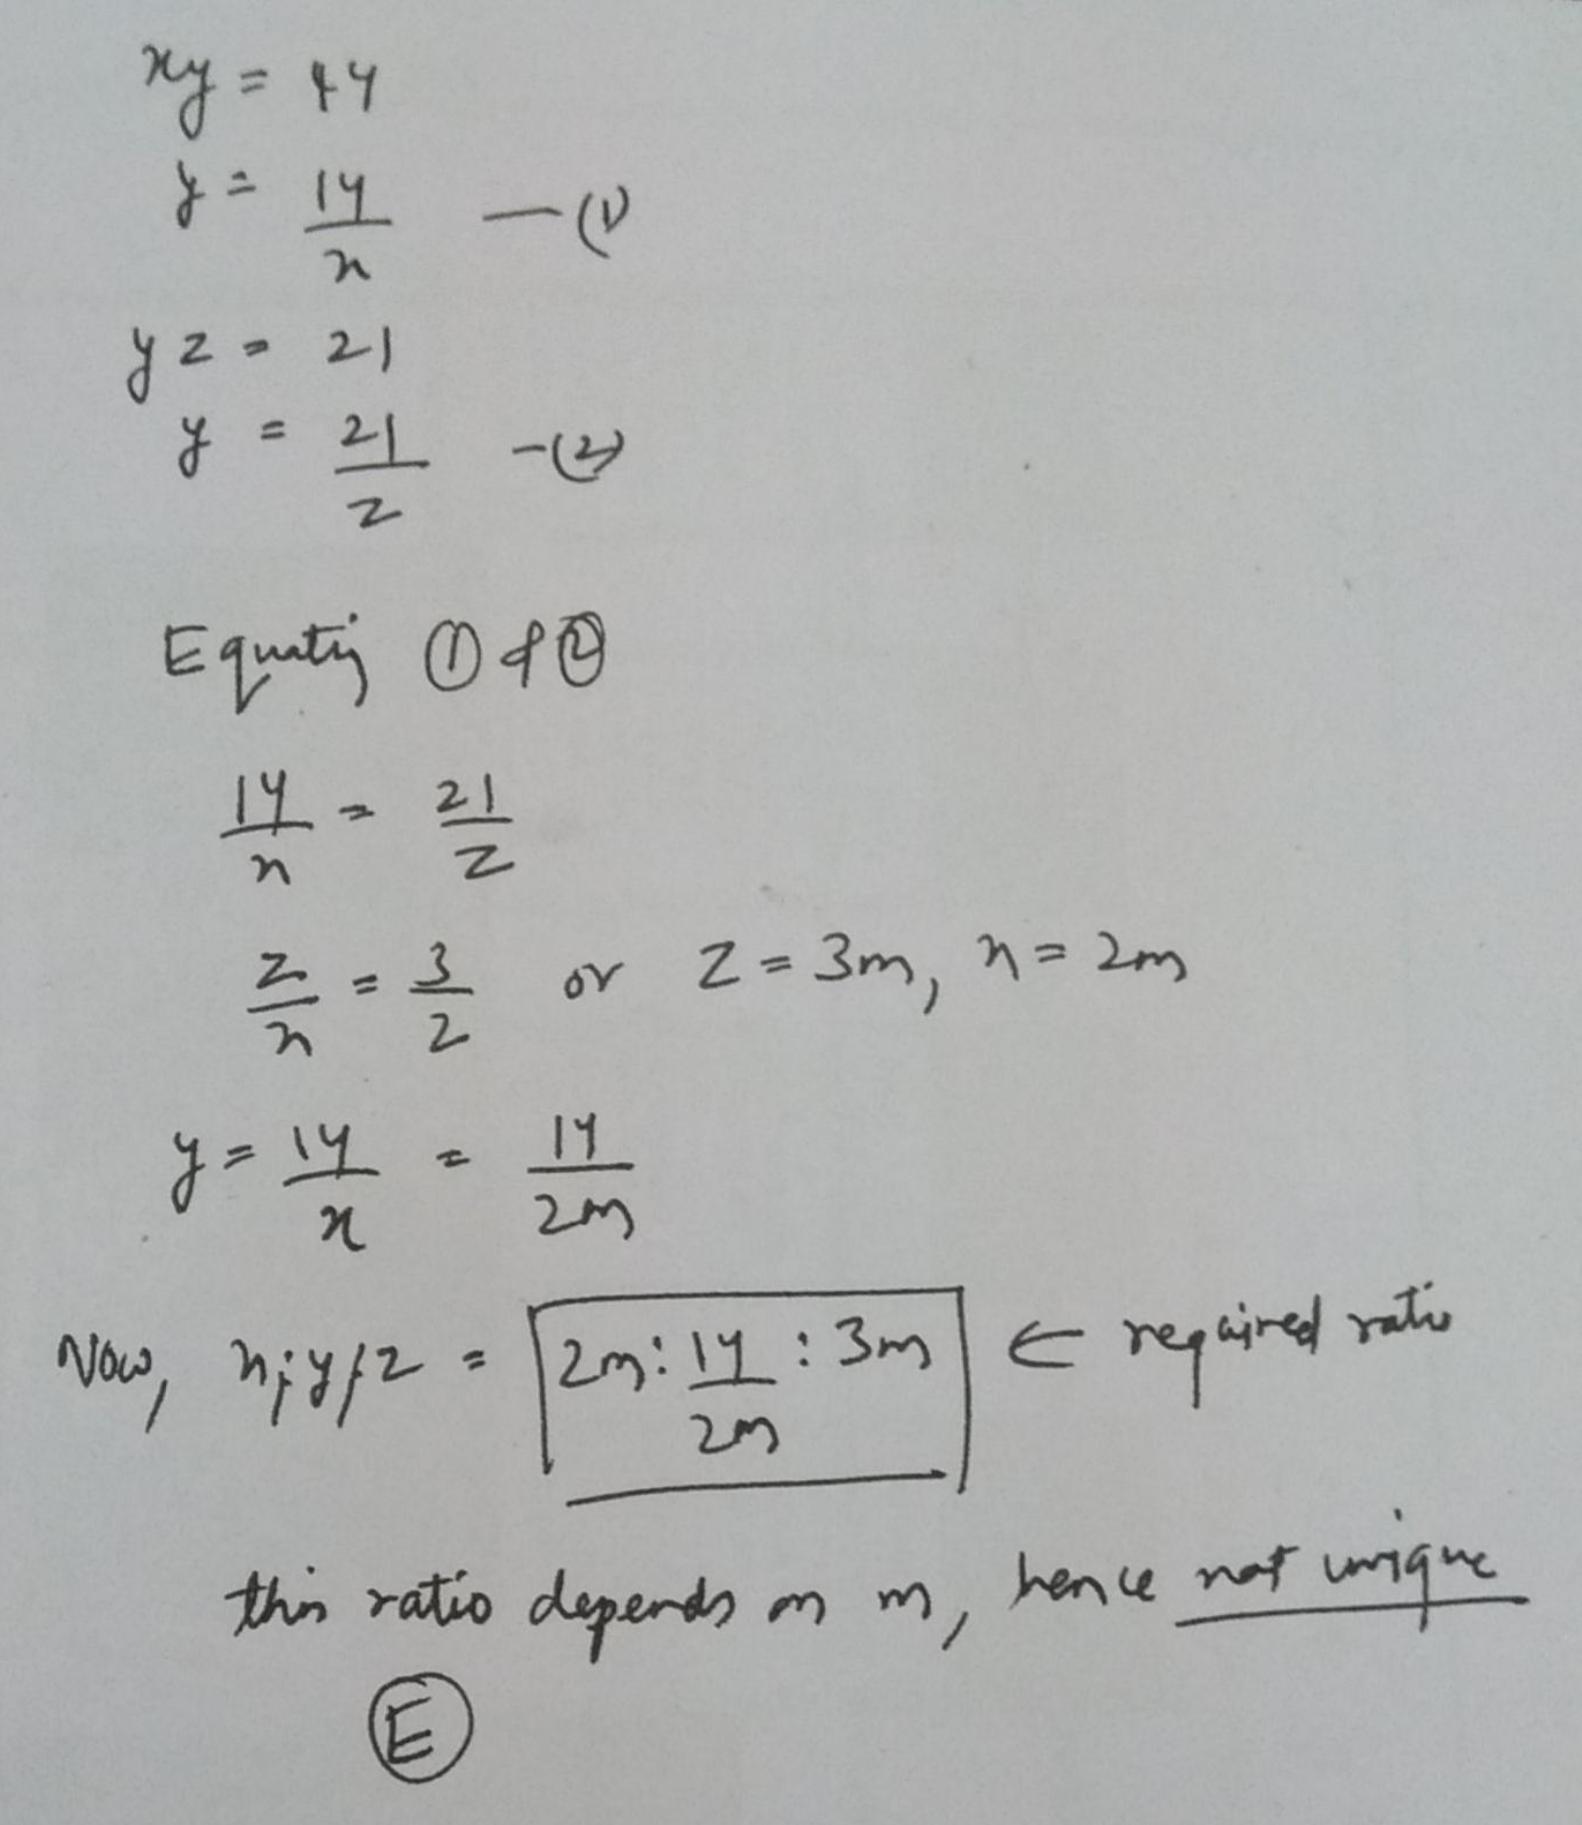 xy = 14
y = 14/x —(1)
yz = 21
y = 21/z —(2)
Equating ① & ②
14/x = 21/z
z/x = 3/2 or z = 3m, x = 2m
y = 14/x = 14/2m
Now, x:y:z = 2m : 14/2m : 3m ← required ratio
this ratio depends on m, hence not unique
Ⓔ